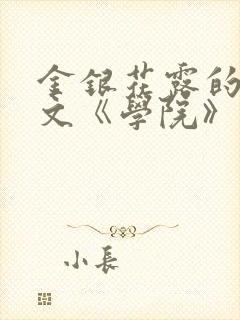 金銀花露的
文《學院》
小長